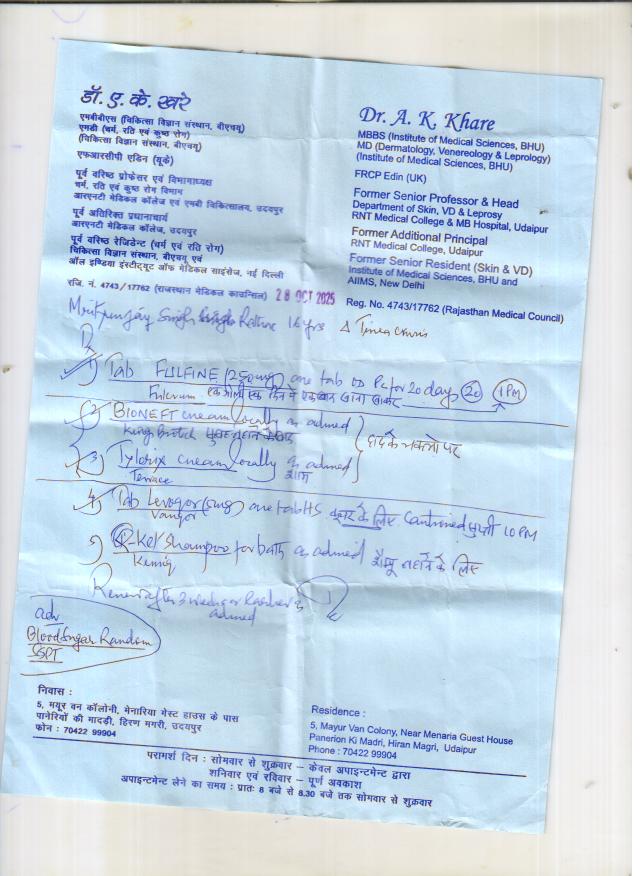 डॉ. ए. के. खरे
एमबीबीएस (चिकित्सा विज्ञान संस्थान, बीएचयू)
एमडी (चर्म, रति एवं कुष्ठ रोग)
(चिकित्सा विज्ञान संस्थान, बीएचयू)
एफआरसीपी एडिन (यूके)
पूर्व वरिष्ठ प्रोफेसर एवं विभागाध्यक्ष
चर्म, रति एवं कुष्ठ रोग विभाग
आरएनटी मेडिकल कॉलेज एवं एमबी चिकित्सालय, उदयपुर
पूर्व अतिरिक्त प्रधानाचार्य
आरएनटी मेडिकल कॉलेज, उदयपुर
पूर्व वरिष्ठ रेजिडेन्ट (चर्म एवं रति रोग)
चिकित्सा विज्ञान संस्थान, बीएचयू एवं
ऑल इण्डिया इंस्टीट्यूट ऑफ मेडिकल साइंसेज, नई दिल्ली
रजि. नं. 4743/17762 (राजस्थान मेडिकल काउन्सिल)
28 OCT 2025
Dr. A. K. Khare
MBBS (Institute of Medical Sciences, BHU)
MD (Dermatology, Venereology & Leprology)
(Institute of Medical Sciences, BHU)
FRCP Edin (UK)
Former Senior Professor & Head
Department of Skin, VD & Leprosy
RNT Medical College & MB Hospital, Udaipur
Former Additional Principal
RNT Medical College, Udaipur
Former Senior Resident (Skin & VD)
Institute of Medical Sciences, BHU and
AIIMS, New Delhi
Reg. No. 4743/17762 (Rajasthan Medical Council)
Singh 16 yrs Δ Tinea Cruris
1) Tab FULFINE (250mg) one tab OD PC for 20 days 20 1PM
2) BIONEFT cream locally as advised
3) cream locally as advised
शाम
4) Tab (5mg) one tab HS के लिए Continued 10 PM
5) Ket Shampoo for bath as advised शैम्पू नहाने के लिए
advised
adv
Blood Sugar Random
SGPT
निवास :
5, मयूर वन कॉलोनी, मेनारिया गेस्ट हाउस के पास
पानेरियों की मादड़ी, हिरण मगरी, उदयपुर
फोन : 70422 99904
Residence :
5, Mayur Van Colony, Near Menaria Guest House
Panerion Ki Madri, Hiran Magri, Udaipur
Phone : 70422 99904
परामर्श दिन : सोमवार से शुक्रवार – केवल अपाइन्टमेन्ट द्वारा
शनिवार एवं रविवार – पूर्ण अवकाश
अपाइन्टमेन्ट लेने का समय : प्रातः 8 बजे से 8.30 बजे तक सोमवार से शुक्रवार